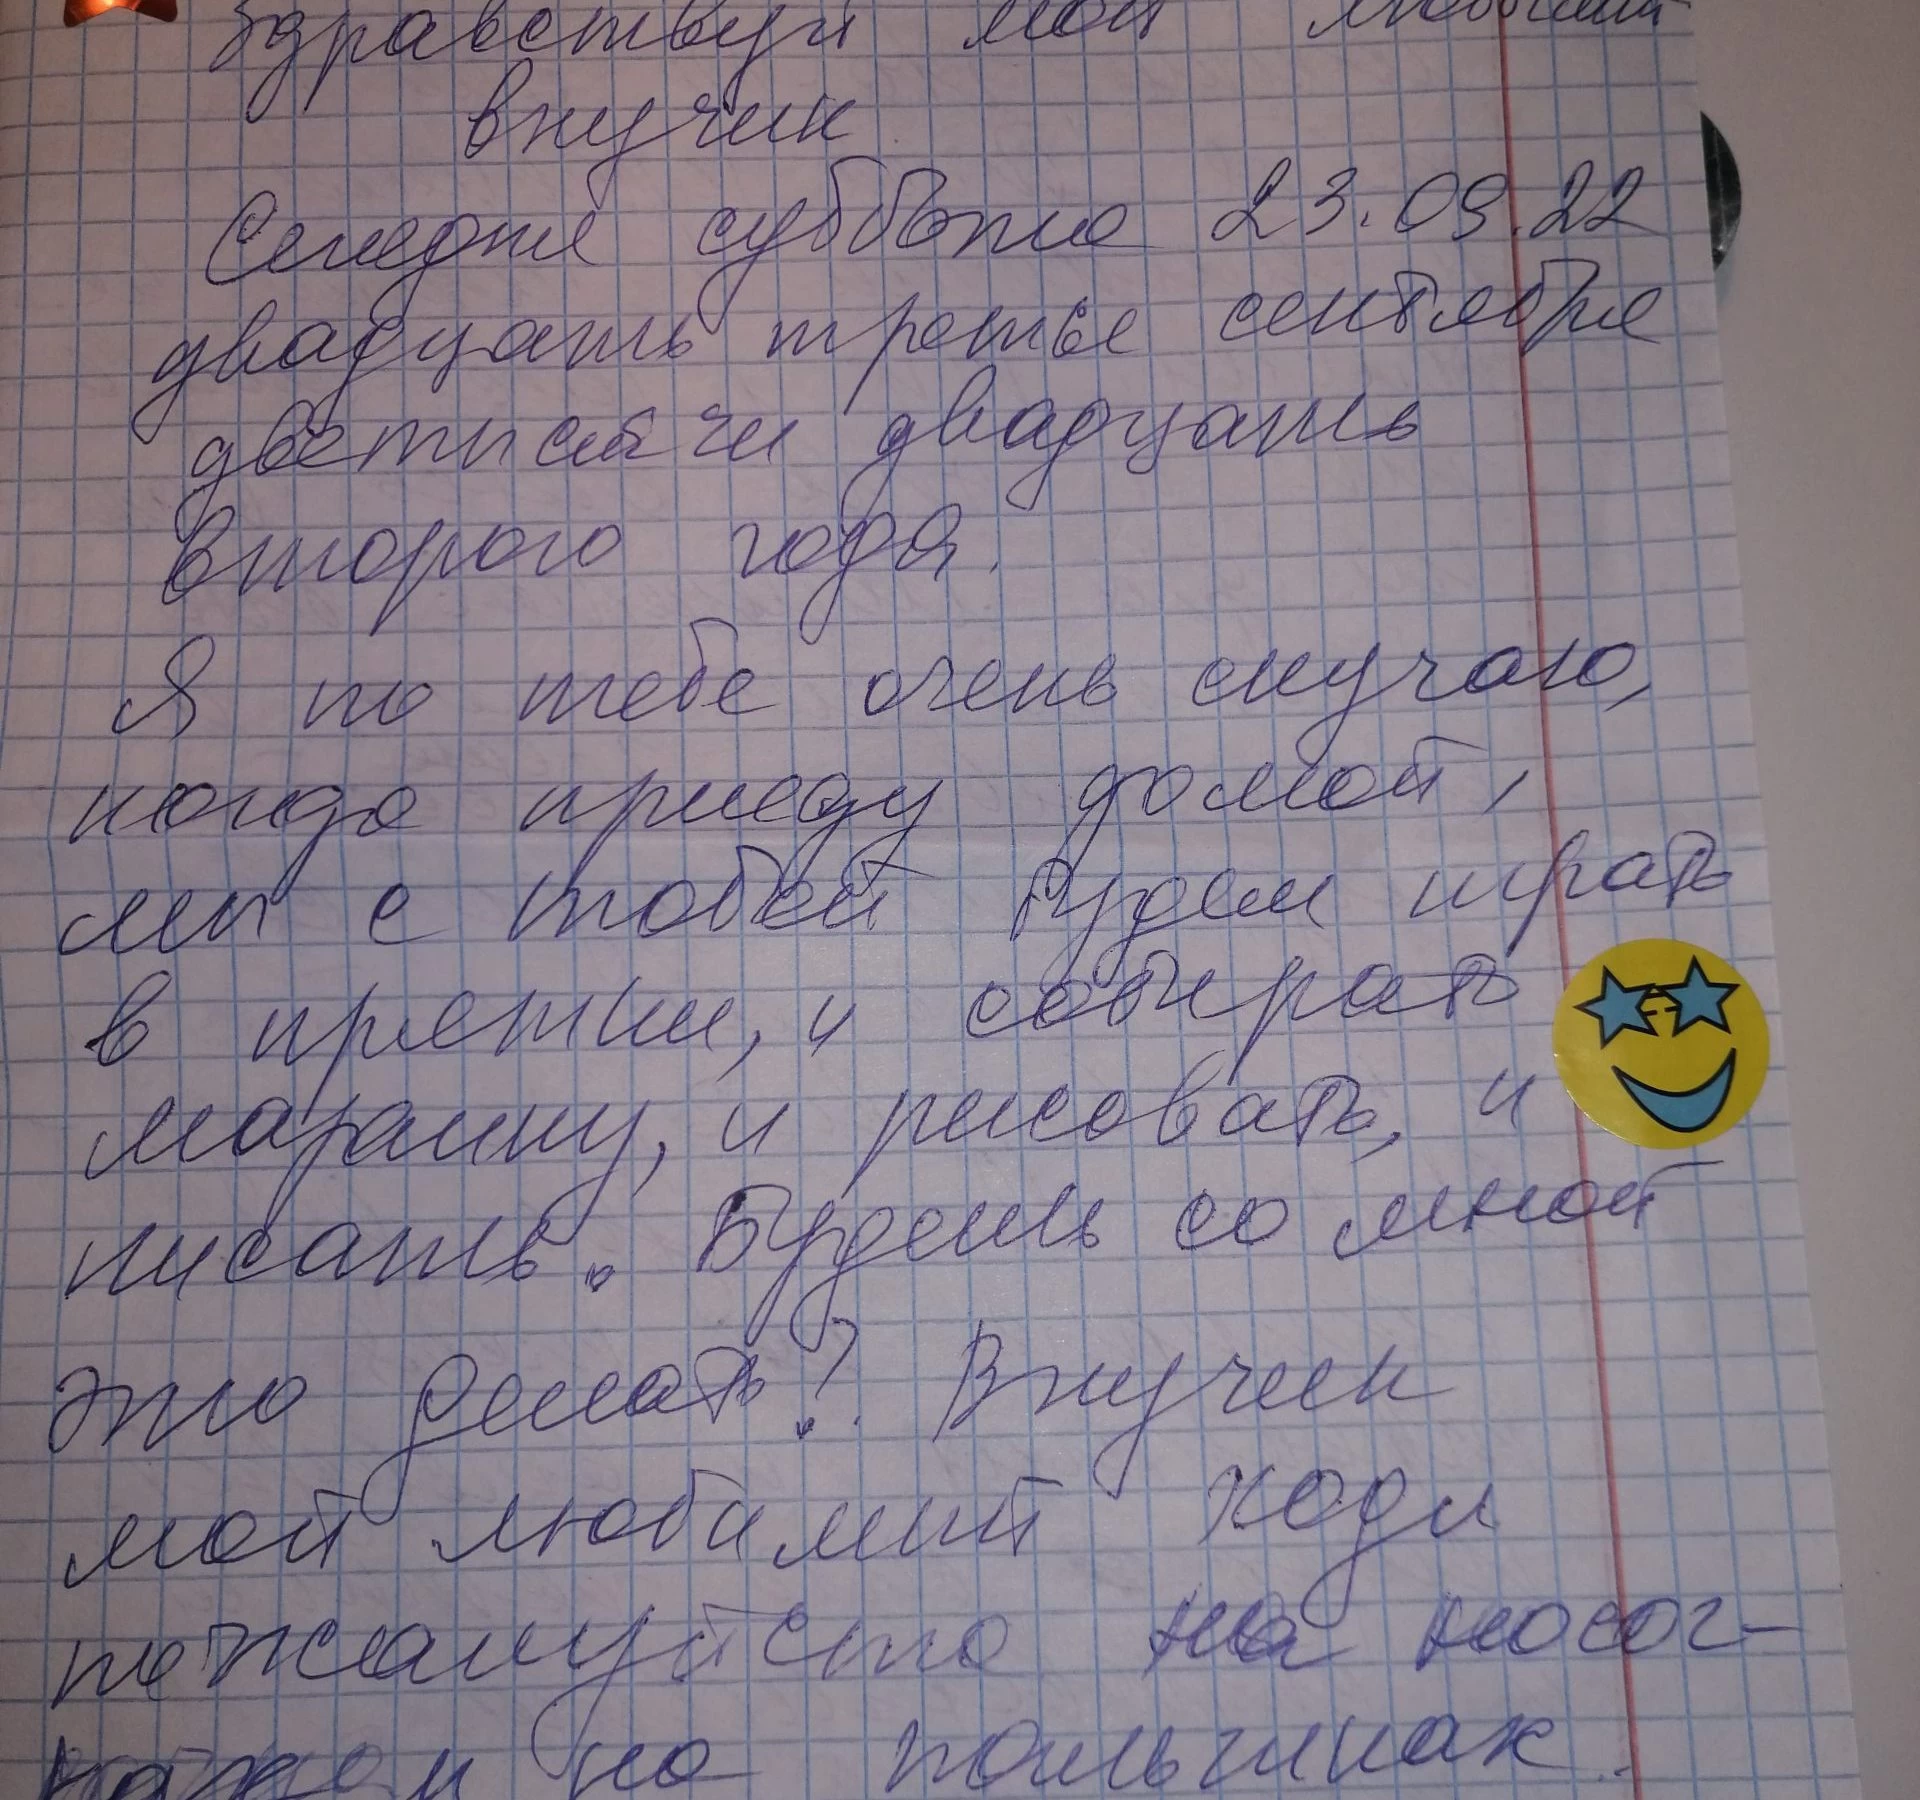 Здравствуй мой любимий
внучик
Сегодня суббота 23.09.22
двадцать третье сентября
дветысячи двадцать
второго года.
Я по тебе очень скучаю,
когда приеду домой,
мы с тобей будем играть
в прятки, и собирать
машину, и рисовать, и
писать. Будешь со мной
это делать? Внучик
мой любимий ходи
пожалуйста на
но пальчиках.